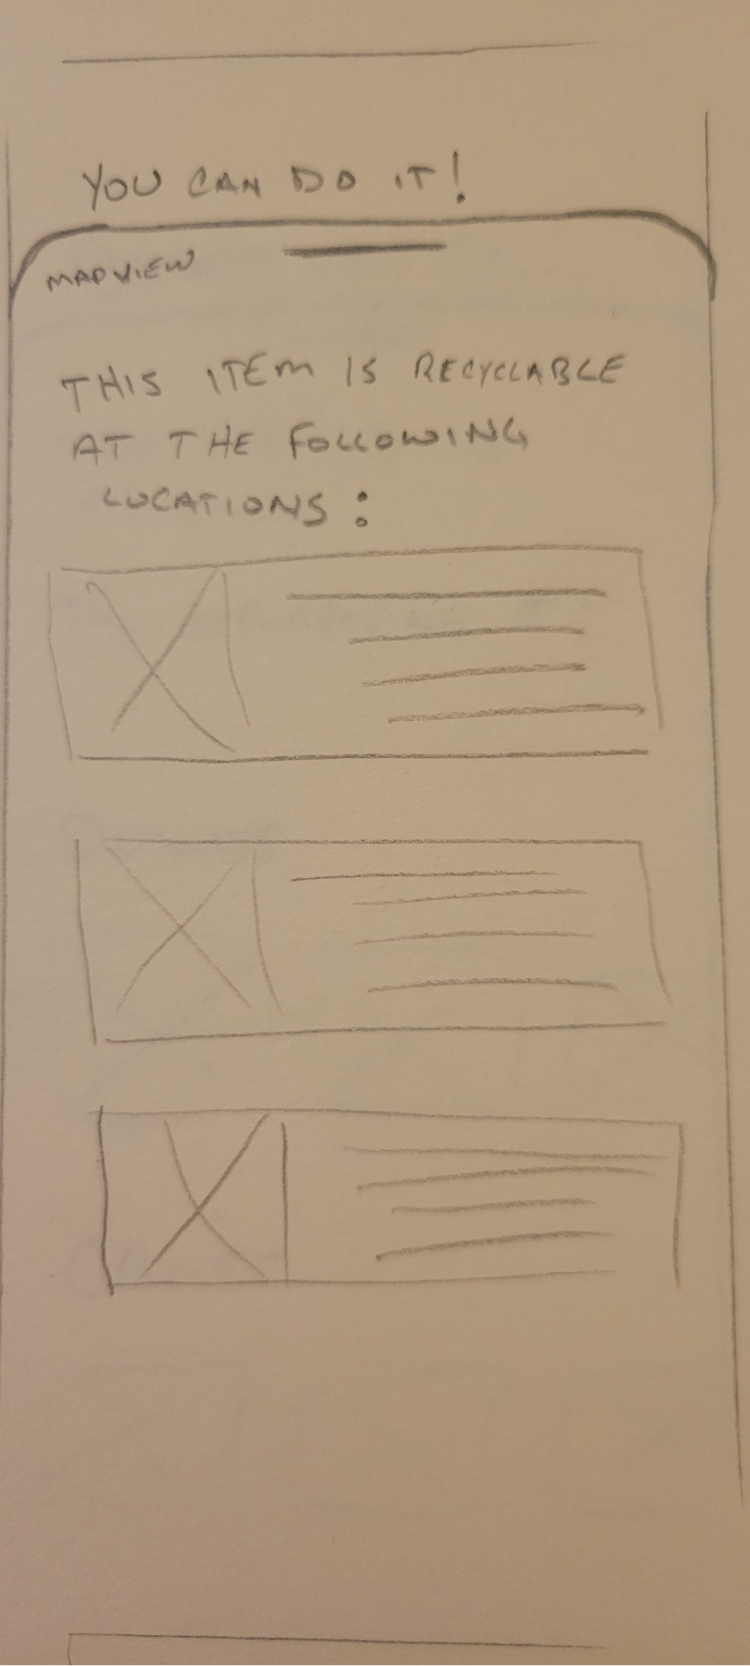 YOU CAN DO IT!
MAP VIEW
THIS ITEM IS RECYCLABLE
AT THE FOLLOWING
LOCATIONS: